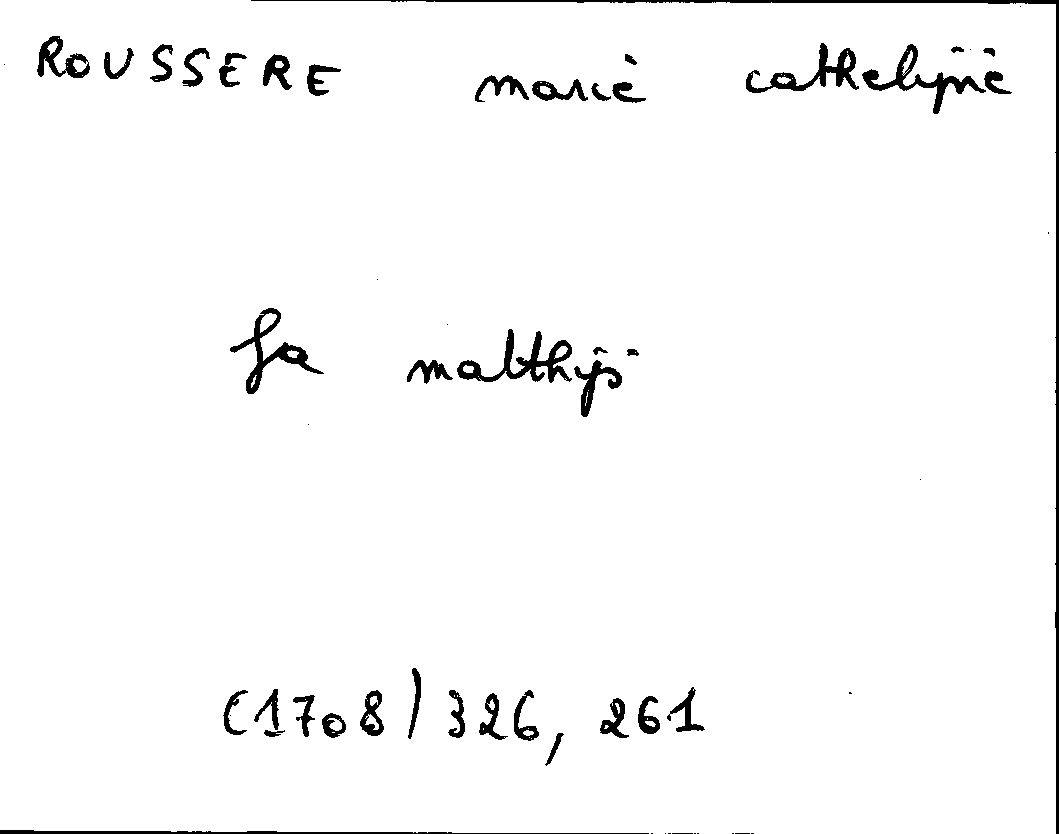 ROUSSERE marie cathelijne
fa matthijs
(1708) 326, 261